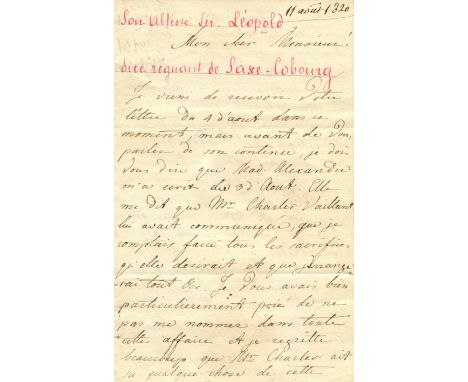 11 août 1820
Son Altesse Ser. Léopold
Mon cher Monsieur!
duc régnant de Saxe-Cobourg
Je viens de recevoir Votre
lettre du 4 d'aout dans ce
moment, mais avant de Vous
parler de son contenu, je dois
Vous dire que Mad. Alexandre
m'a ecrit du 3 d'Aout. Elle
me dit que Mr. Charles Vaillant
lui avait communiqué, que je
comptais faire tous les sacrifices
qu'elle desirait et que j'arrange-
rai tout &c. Je Vous avais bien
particulierement prié de ne
pas me nommer dans toute
cette affaire et je regrette
beaucoup que Mr. Charles ait
su quelque chose de cette